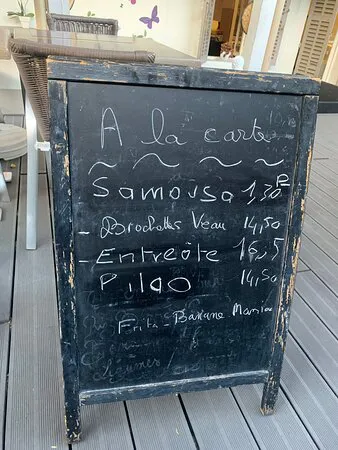 A la carte
Samousa 1,50 P
- Brochettes Veau 14,50
- Entrecôte 16,5
Pilao 14,50
Frite - Banane